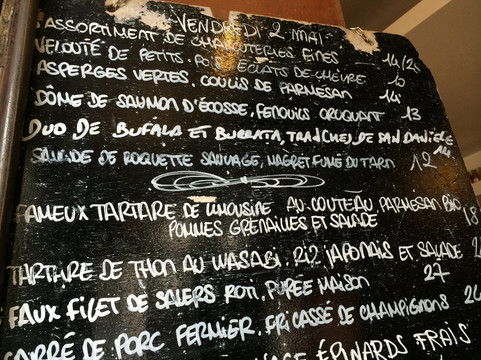 VENDREDI 2 MAI
ASSORTIMENT DE CHARCUTERIES FINES 14/24
VELOUTÉ DE PETITS POIS ÉCLATS DE CHÈVRE 10
ASPERGES VERTES, COULIS DE PARMESAN 14
DÔME DE SAUMON D'ÉCOSSE, FENOUILS CROQUANT 13
DUO DE BUFALA ET BURRATA, TRANCHES DE SAN DANIELE 14
SALADE DE ROQUETTE SAUVAGE, MAGRET FUMÉ DU TARN 12
FAMEUX TARTARE DE LIMOUSINE AU COUTEAU, PARMESAN BIO 18
POMMES GRENAILLES ET SALADE
TARTARE DE THON AU WASABI, RIZ JAPONAIS ET SALADE
FAUX FILET DE SALERS ROTI, PURÉE MAISON 27
CARRÉ DE PORC FERMIER, FRICASSÉ DE CHAMPIGNONS
ÉPINARDS FRAIS